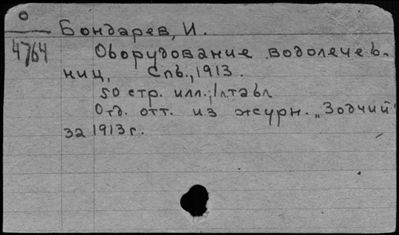 О
Бондарев, И.
4764
Оборудование водолечеб-
ниц, Спб., 1913.
50 стр. илл.; 1 л. табл
Отд. отт. из журн. „Зодчий"
за 1913 г.